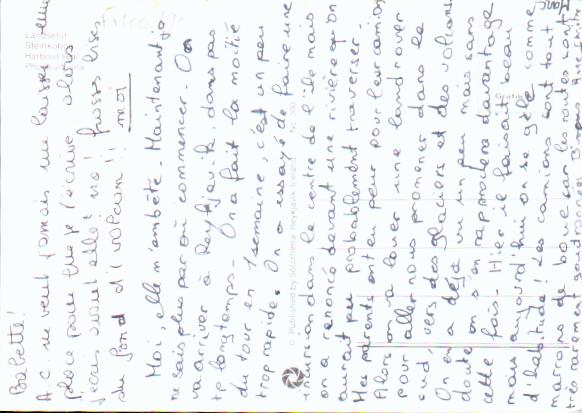 Babette!
A.C. ne veut jamais me laisser une
place pour que je t'écrive alors
j'écris avant elle! na! Grosses bises
du fond d'1 volcan!! moi
Moi, elle m'embête. Maintenant je
ne sais plus par où commencer. On
va arriver à Reykjavik dans pas
tp longtemps. On a fait la moitié
du tour en 1 semaine, c'est un peu
trop rapide. On a essayé de faire une
incursion dans le centre de l'île mais
on a renoncé devant une rivière qu'on
aurait pu probablement traverser.
Mes parents ont eu peur pour leur camion
Alors on va louer une land rover
pour aller nous promener dans le
sud, vers des glaciers et des volcans
On en a déjà vu un peu mais sans
doute on s'en rapprochera davantage
cette fois. Hier il faisait beau
mais aujourd'hui on se gèle comme
d'habitude! Les camions sont tout
marrons de boue car les routes sont
très rarement goudronnées.
Landselur
Steinkobbe
Harbour seal
Phoca vitulina
© Published by Sólarfilma Reykjavík Iceland